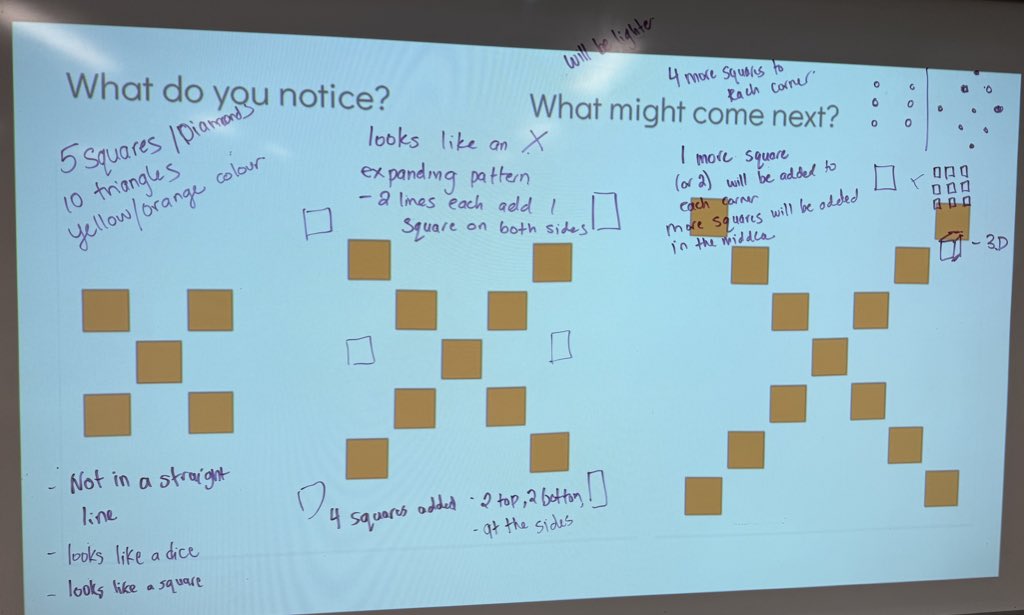 will be lighter
What do you notice?
5 squares/Diamonds
10 triangles
yellow/orange colour
looks like an X
expanding pattern
- 2 lines each add 1
square on both sides
4 more squares to
each corner
What might come next?
1 more square
(or 2) will be added to
each corner
more squares will be added
in the middle
- 3D
- Not in a straight
line
- looks like a dice
- looks like a square
4 squares added - 2 top, 2 bottom,
- at the sides